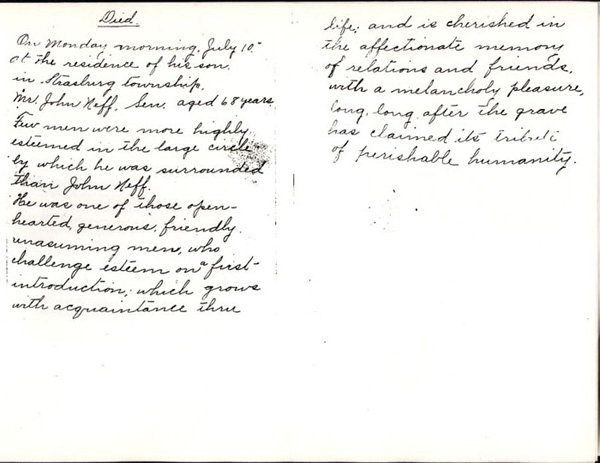 Died.
On Monday morning, July 15
at the residence of his son.
in Strasburg township.
Mr. John Neff, Sen. aged 68 years
Few men were more highly
esteemed in the large circle
by which he was surrounded
than John Neff.
He was one of those open-
hearted, generous, friendly.
unasuming men, who
challenge esteem on a first-
introduction; which grows
with acquaintance thru
life; and is cherished in
the affectionate memory
of relations and friends,
with a melancholy pleasure,
long, long after the grave
has claimed its tribute
of perishable humanity.